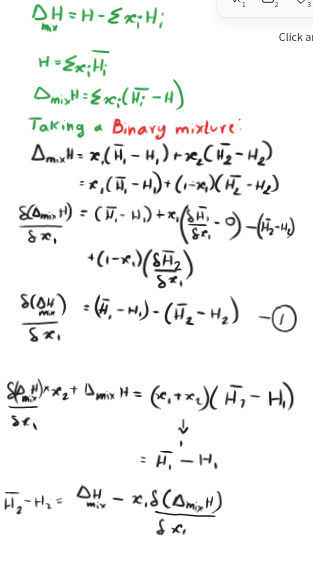 Δ_mix H = H - Σx_i H_i
H = Σx_i H̅_i
Δ_mix H = Σx_i (H̅_i - H)
Taking a Binary mixture:
Δ_mix H = x₁(H̅₁ - H₁) + x₂(H̅₂ - H₂)
= x₁(H̅₁ - H₁) + (1-x₁)(H̅₂ - H₂)
δ(Δ_mix H)/δx₁ = (H̅₁ - H₁) + x₁(δH̅₁/δx₁ - 0) - (H̅₂ - H₂)
+ (1-x₁)(δH̅₂/δx₁)
δ(Δ_mix H)/δx₁ = (H̅₁ - H₁) - (H̅₂ - H₂) - ①
δ(Δ_mix H)/δx₁ × x₂ + Δ_mix H = (x₁+x₂)(H̅₁ - H₁)
↓
= H̅₁ - H₁
H̅₂ - H₂ = Δ_mix H - x₁ δ(Δ_mix H)/δx₁
Click ar